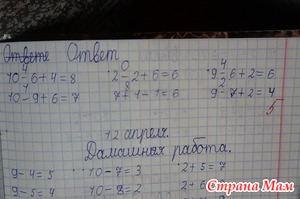 Ответе Ответ
4 0 4
10-6+4=8 2-2+6=6 9-6+2=6
1 8 2
10-9+6=7 7+1-1=6 9-7+2=4
5
12 апреля.
Дамашняя работа.
9-4=5 10-7=3 2+5=7
9-5=4 10-8=2
Страна Мам